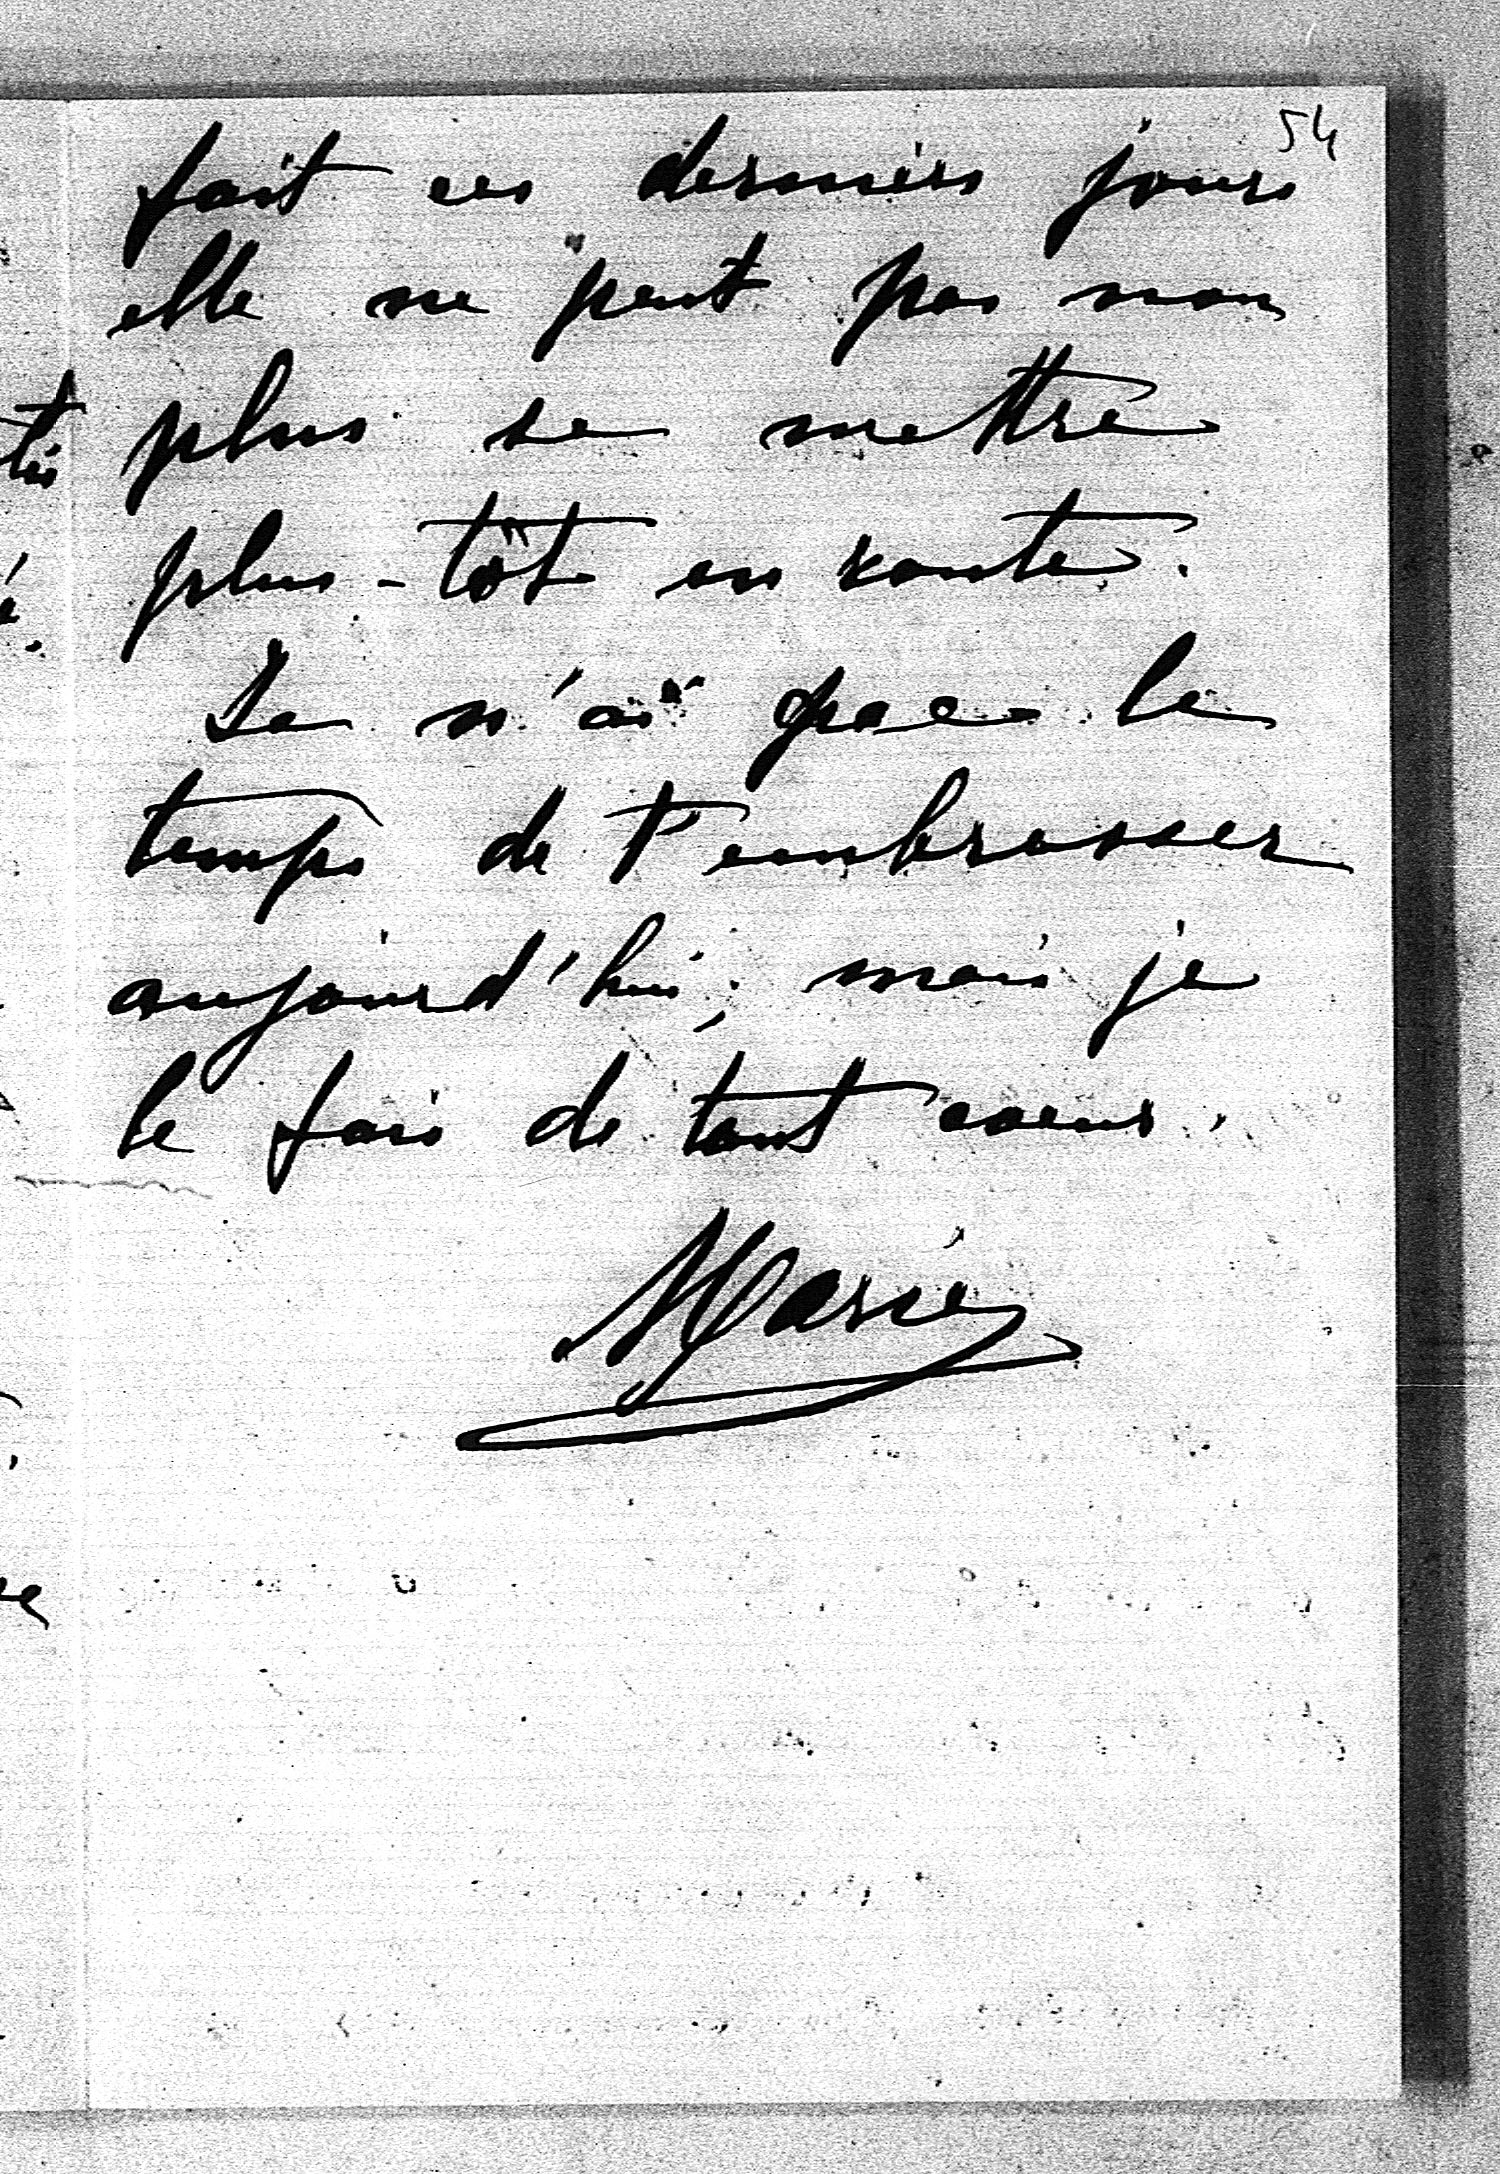 54
fait ces derniers jours
elle ne peut pas non
plus se mettre
plus-tôt en route.
Je n'ai que le
temps de t'embrasser
aujourd'hui, mais je
le fais de tout coeur.
Marie